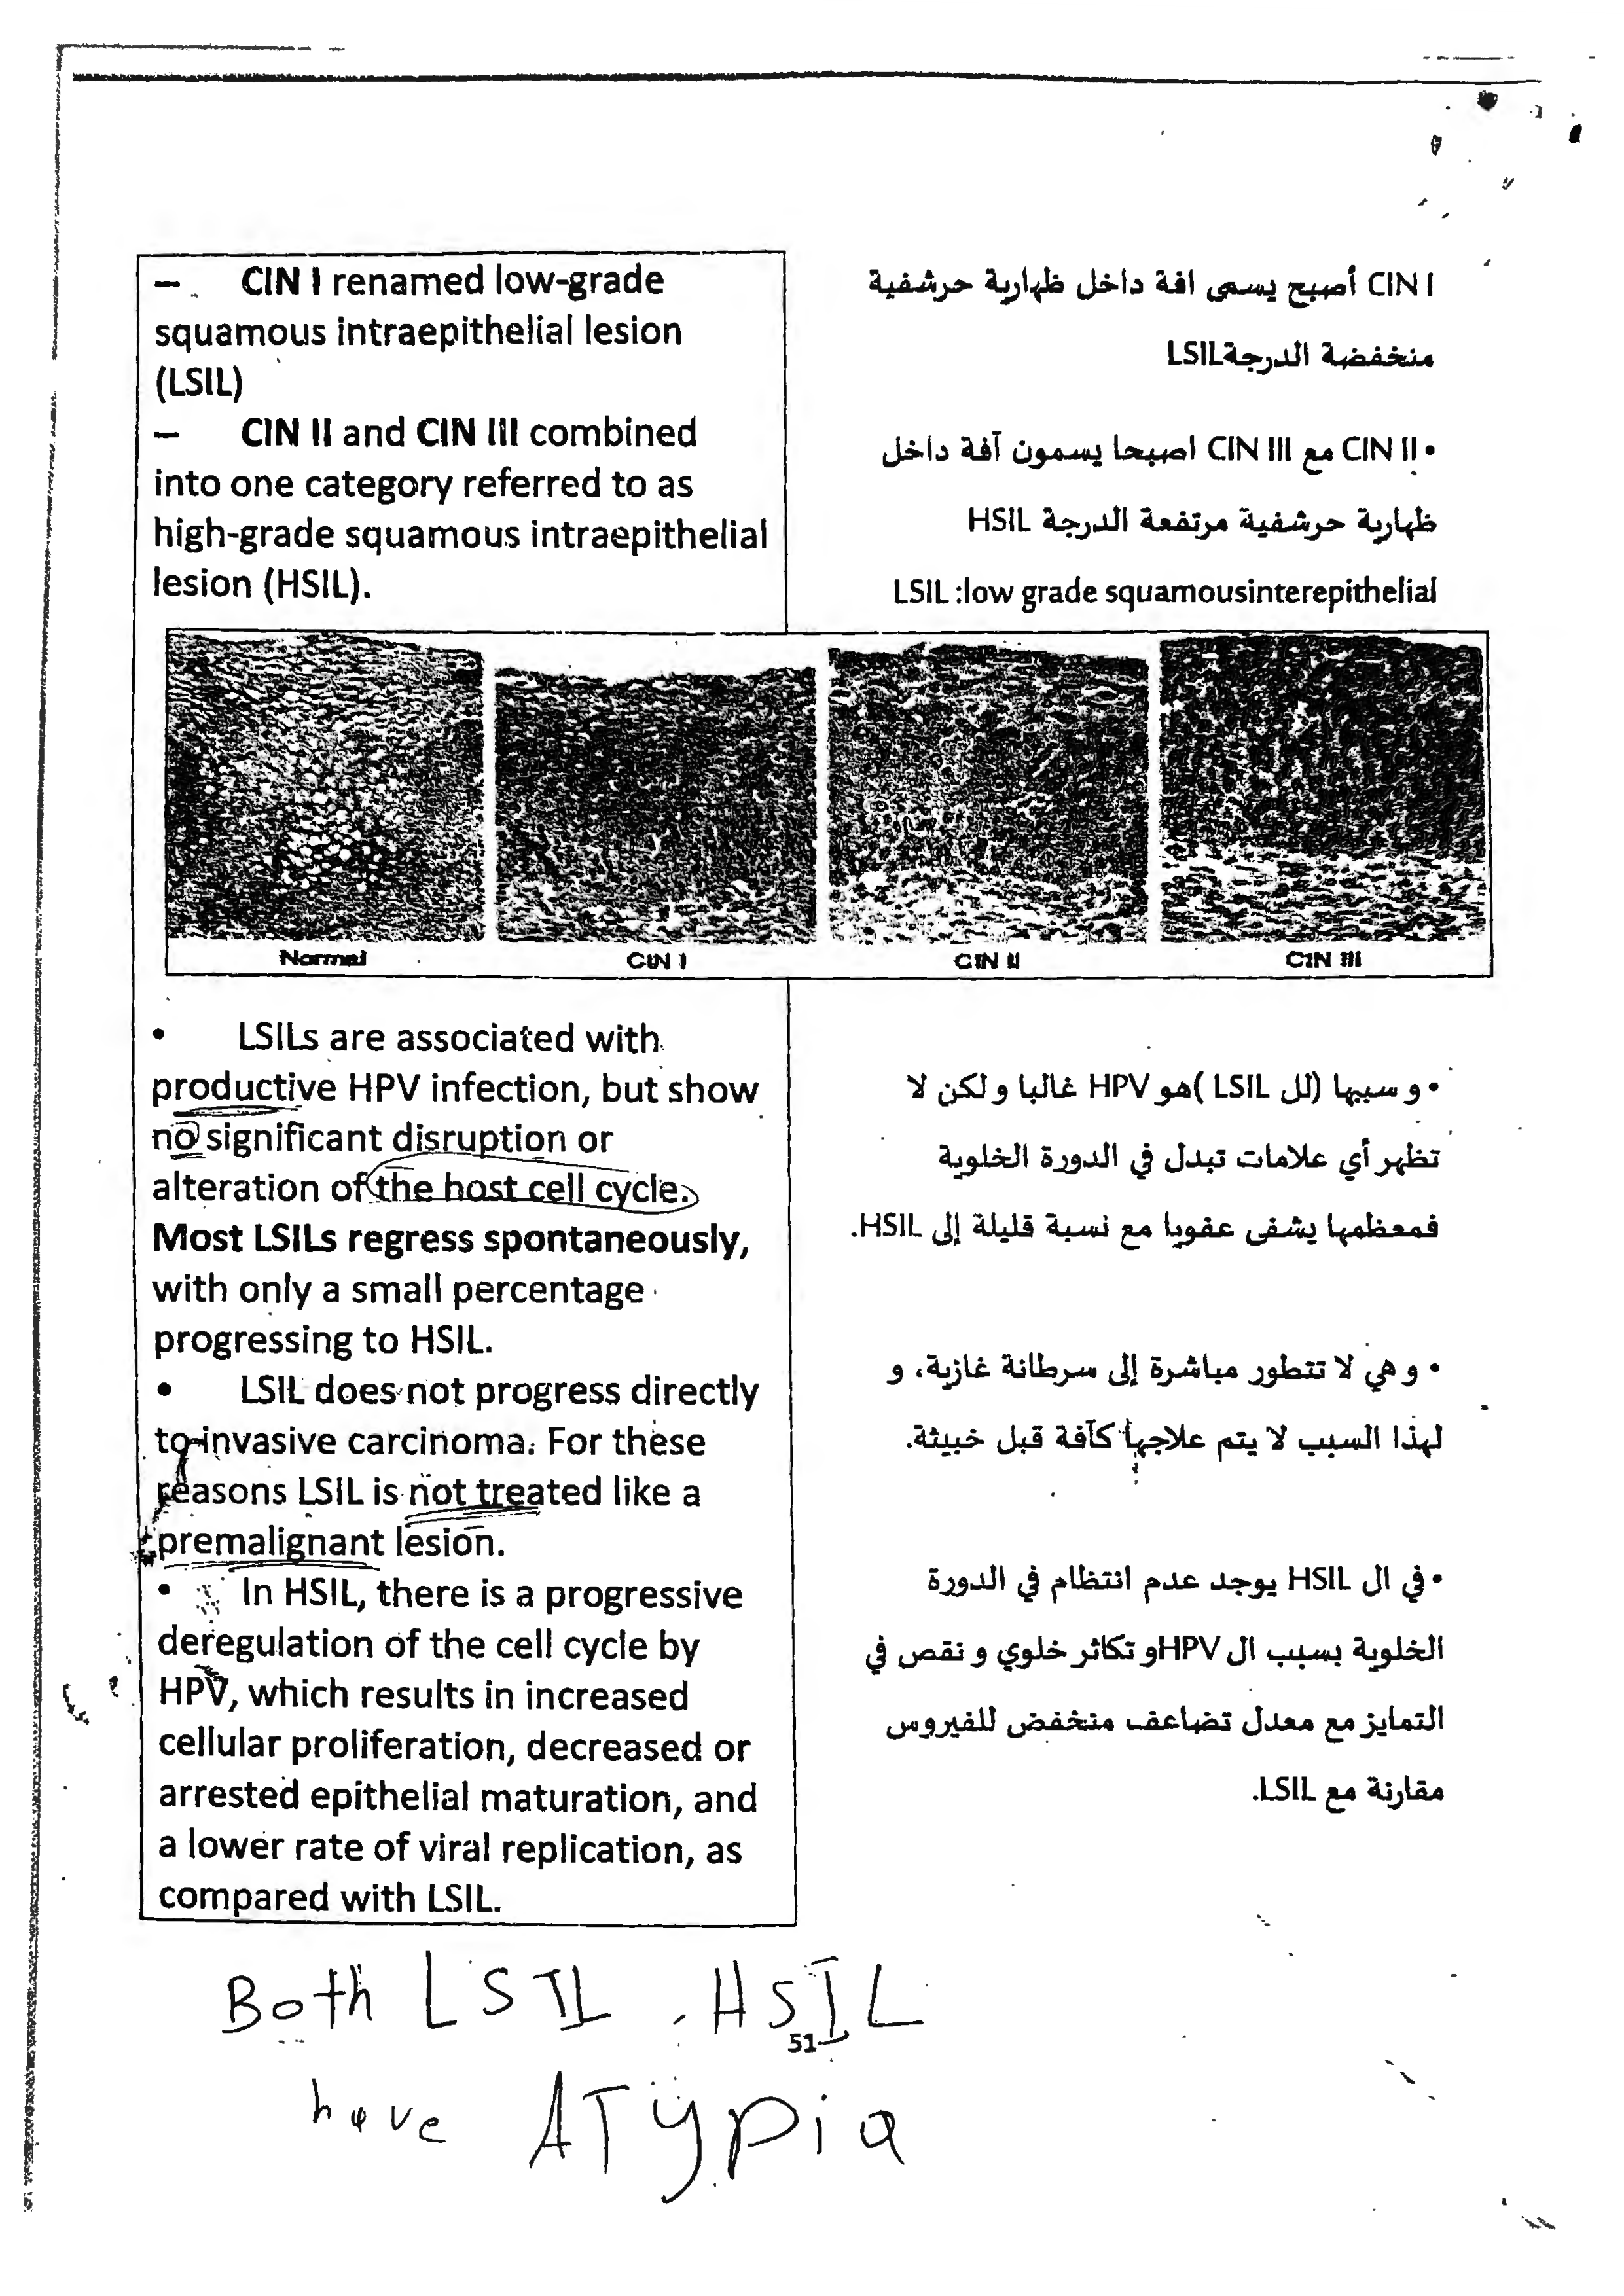 – CIN I renamed low-grade
squamous intraepithelial lesion
(LSIL)
– CIN II and CIN III combined
into one category referred to as
high-grade squamous intraepithelial
lesion (HSIL).
CIN I أصبح يسمى افة داخل ظهارية حرشفية
منخفضة الدرجةLSIL
• CIN II مع CIN III اصبحا يسمون آفة داخل
ظهارية حرشفية مرتفعة الدرجة HSIL
LSIL :low grade squamousinterepithelial
Normal
CIN I
CIN II
CIN III
• LSILs are associated with
productive HPV infection, but show
no significant disruption or
alteration of the host cell cycle.
Most LSILs regress spontaneously,
with only a small percentage
progressing to HSIL.
• LSIL does not progress directly
to invasive carcinoma. For these
reasons LSIL is not treated like a
premalignant lesion.
• In HSIL, there is a progressive
deregulation of the cell cycle by
HPV, which results in increased
cellular proliferation, decreased or
arrested epithelial maturation, and
a lower rate of viral replication, as
compared with LSIL.
• و سببها (لل LSIL )هو HPV غالبا و لكن لا
تظهر أي علامات تبدل في الدورة الخلوية
فمعظمها يشفى عفويا مع نسبة قليلة إلى HSIL.
• و هي لا تتطور مباشرة إلى سرطانة غازية، و
لهذا السبب لا يتم علاجها كآفة قبل خبيثة.
• في ال HSIL يوجد عدم انتظام في الدورة
الخلوية بسبب ال HPVو تكاثر خلوي و نقص في
التمايز مع معدل تضاعف منخفض للفيروس
مقارنة مع LSIL.
Both LSIL , HSIL
51
have ATypia